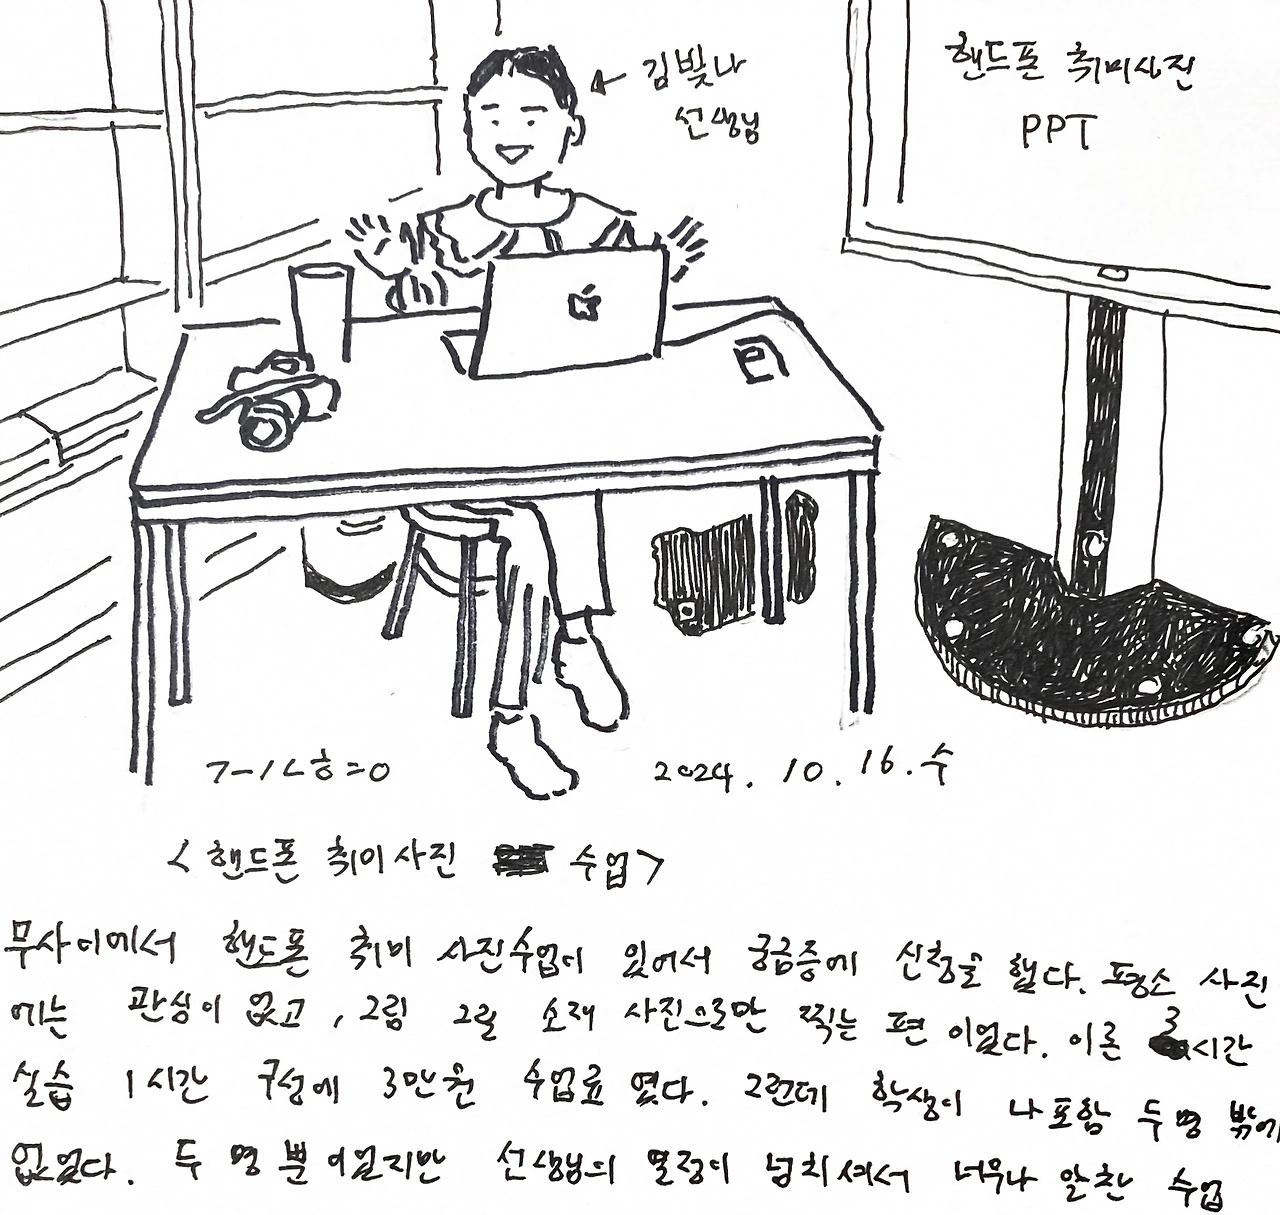 김빛나
선생님
핸드폰 취미사진
PPT
2024. 10. 16. 수
<핸드폰 취미사진 수업>
무사이에서 핸드폰 취미 사진수업이 있어서 궁금증에 신청을 했다. 평소 사진
에는 관심이 없고, 그림 그릴 소재 사진으로만 찍는 편 이었다. 이론 3시간
실습 1시간 구성에 3만원 수업료 였다. 그런데 학생이 나 포함 두 명 밖에
없었다. 두 명 뿐 이었지만 선생님의 열정이 넘치셔서 너무나 알찬 수업